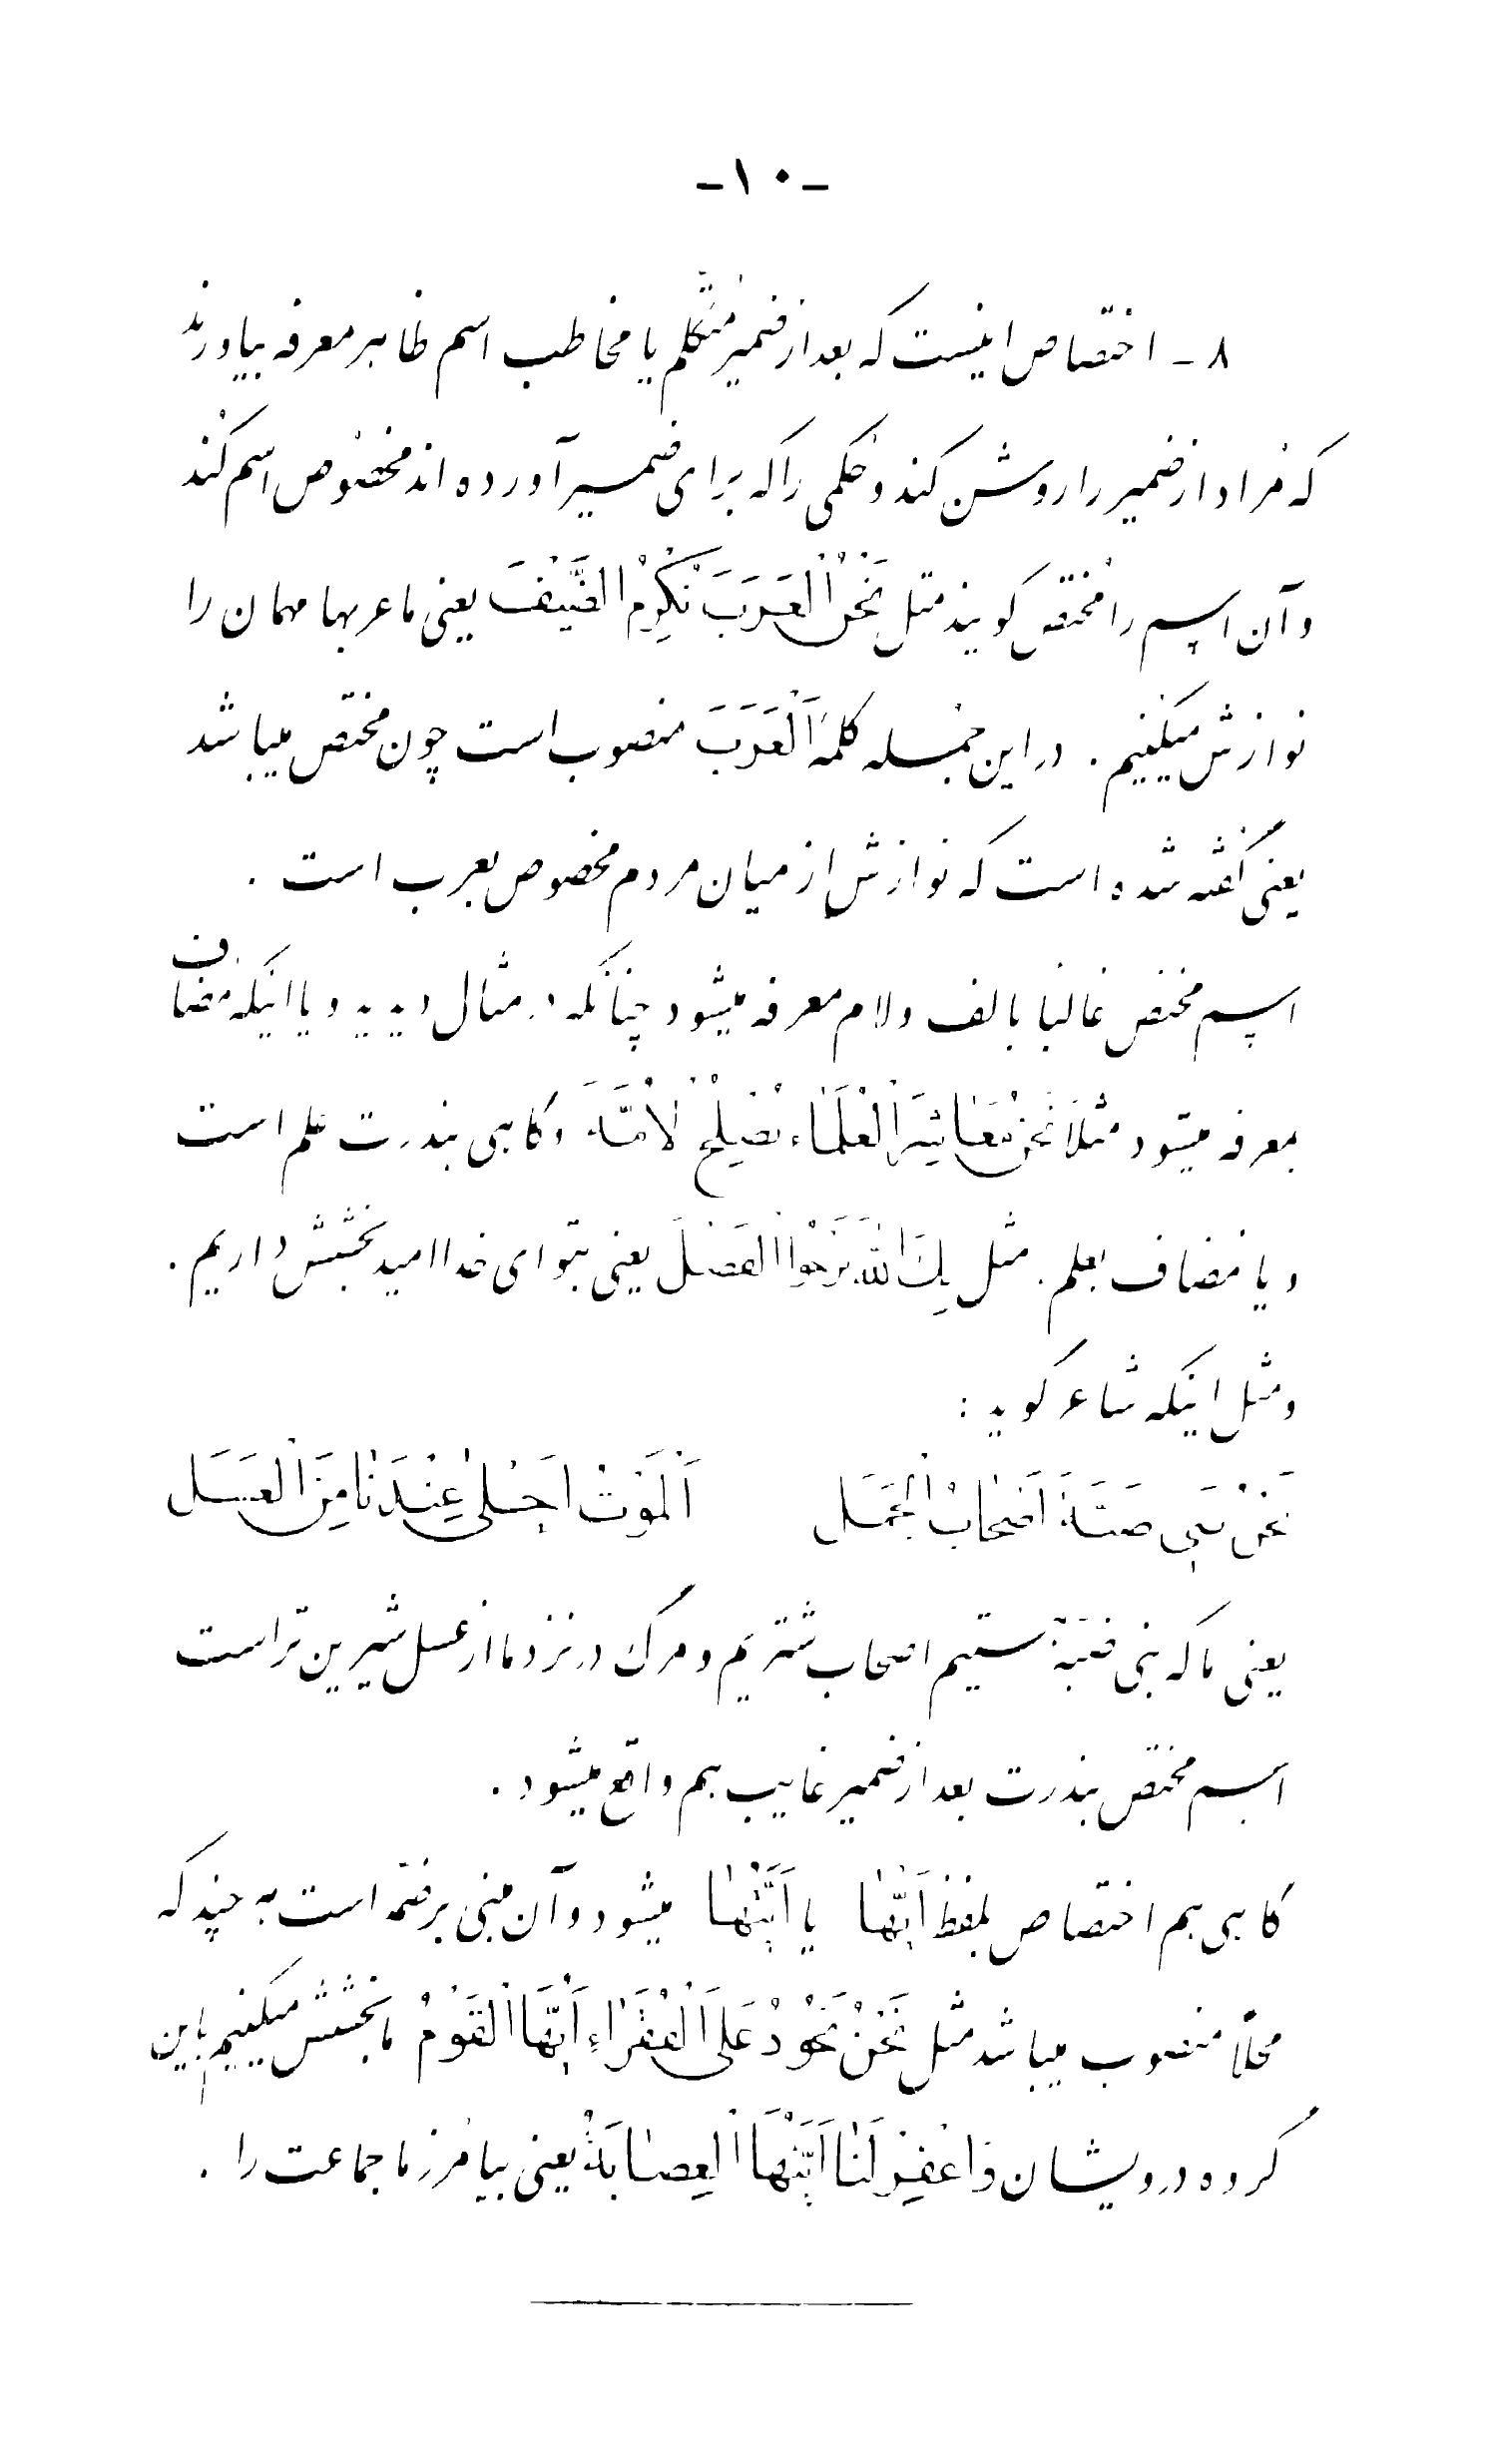 -١٠-
٨ - اختصاص اینست که بعد از ضمیر متکلم یا مخاطب اسم ظاهر معرفه بیاورند
که مراد از ضمیر را روشن کند و حکمی را که برای ضمیر آورده اند مخصوص اسم کند
و آن اسم را مختص گویند مثل نَحْنُ الْعَرَبَ نُکْرِمُ الضَّیْفَ یعنی ما عربها مهمان را
نوازش میکنیم . در این جمله کلمهٔ اَلْعَرَبَ منصوب است چون مختص میباشد
یعنی گفته شده است که نوازش از میان مردم مخصوص بعرب است .
اسم مختص غالبا با الف و لام معرفه میشود چنانکه در مثال دیدید و یا اینکه مضاف
بمعرفه میشود مثلاً نَحْنُ مَعَاشِرَ الْعُلَمَاءِ نُصْلِحُ الْاُمَّةَ و گاهی بندرت علم است
و یا مضاف بعلم . مثل بِكَ اللهَ نَرْجُوا الْفَضْلَ یعنی بتو ای خدا امید بخشش داریم .
و مثل اینکه شاعر گوید :
نَحْنُ بَنِی ضَبَّةَ اَصْحَابُ الْجَمَلِ اَلْمَوْتُ اَحْلیٰ عِنْدَنٰا مِنَ الْعَسَلِ
یعنی ما که بنی ضَبَّة هستیم اصحاب شتریم و مرگ در نزد ما از عسل شیرین تر است
اسم مختص بندرت بعد از ضمیر غایب هم واقع میشود .
گاهی هم اختصاص بلفظ اَیُّهٰا یا اَیَّتُهٰا میشود و آن مبنی بر ضمه است هر چند که
محلاً منصوب میباشد مثل نَحْنُ نَجُودُ عَلَی الْفُقَرٰاءِ اَیُّهَا الْقَوْمُ ما بخشش میکنیم باین
گروه درویشان وَاغْفِرْ لَنٰا اَیَّتُهَا الْعِصٰابَةُ یعنی بیامرز ما جماعت را .